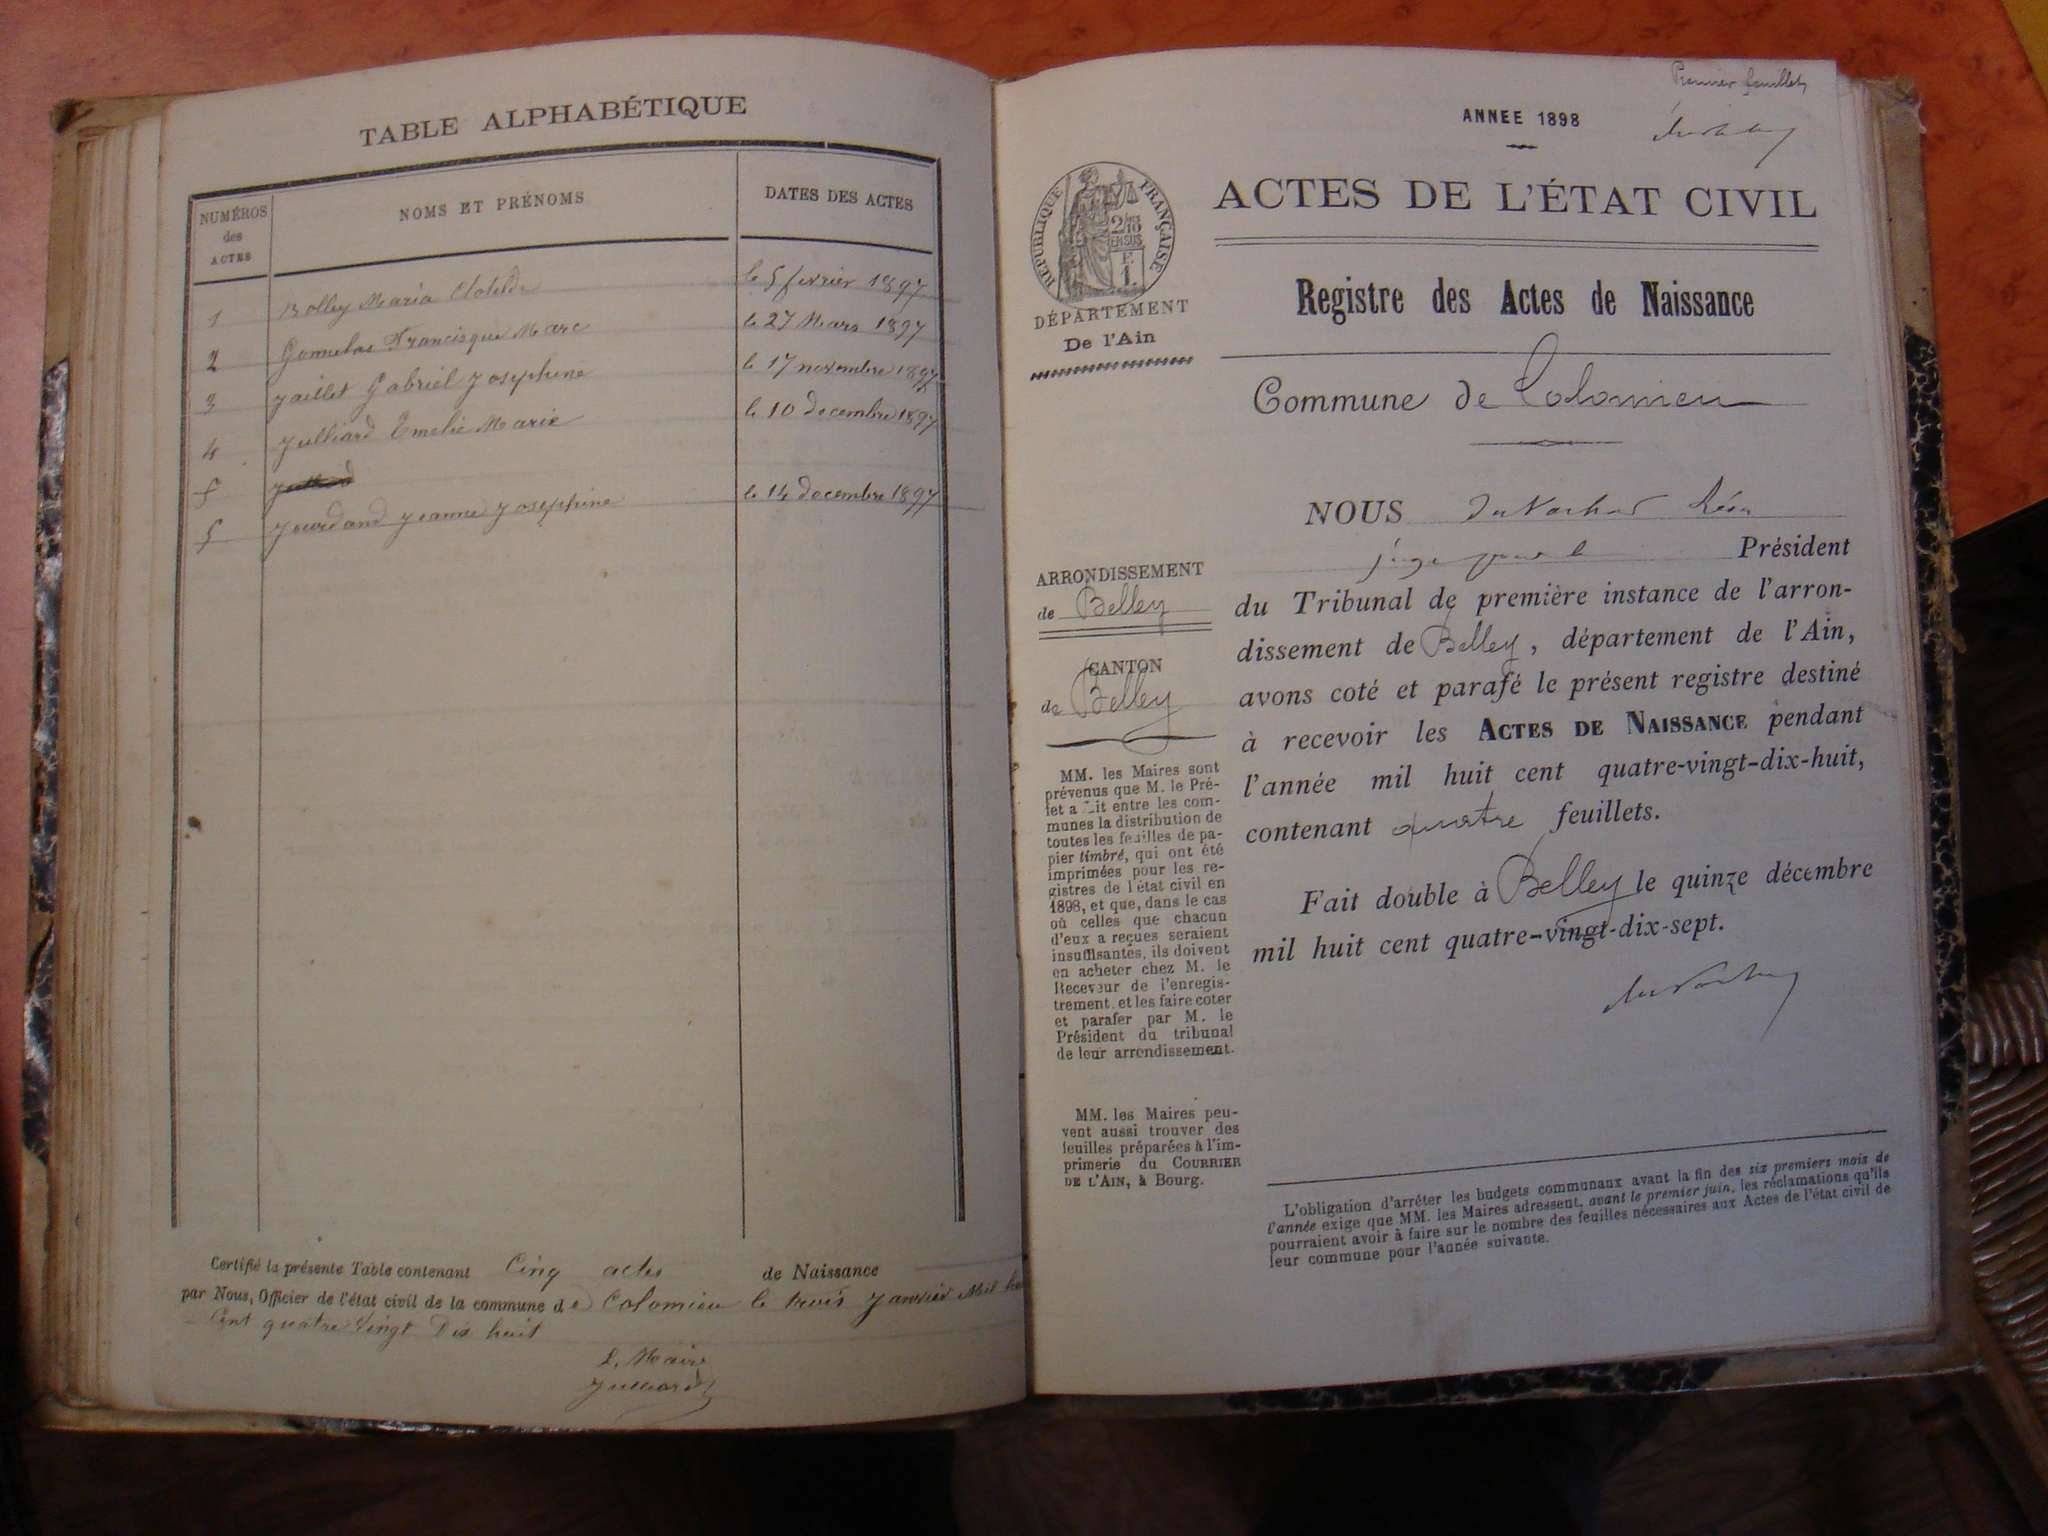 TABLE ALPHABÉTIQUE
NUMÉROS des ACTES
NOMS ET PRÉNOMS
DATES DES ACTES
1 Bolley Maria Clotilde le 5 fevrier 1897
2 Francisque Marc le 27 Mars 1897
3 Jaillet Gabriel Josephine le 17 novembre 1897
4 Julliard Emelie Marie le 10 decembre 1897
5
5 Jourdand Jeanne Josephine le 14 decembre 1897
Certifié la présente Table contenant Cinq actes de Naissance
par Nous, Officier de l'état civil de la commune de Colomieu le trois Janvier Mil
Cent quatre Vingt Dix huit
L. Maire
Julliard
Premier feuillet
ANNEE 1898
ACTES DE L'ÉTAT CIVIL
RÉPUBLIQUE FRANÇAISE
2/10
EN SUS
F.
1.
DÉPARTEMENT
De l'Ain
Registre des Actes de Naissance
Commune de Colomieu
ARRONDISSEMENT
de Belley
CANTON
de Belley
MM. les Maires sont
prévenus que M. le Pré-
fet a fait entre les com-
munes la distribution de
toutes les feuilles de pa-
pier timbré, qui ont été
imprimées pour les re-
gistres de l'état civil en
1898, et que, dans le cas
où celles que chacun
d'eux a reçues seraient
insuffisantes, ils doivent
en acheter chez M. le
Receveur de l'enregis-
trement, et les faire coter
et parafer par M. le
Président du tribunal
de leur arrondissement.
MM. les Maires peu-
vent aussi trouver des
feuilles préparées à l'im-
primerie du COURRIER
DE L'AIN, à Bourg.
NOUS
juge pour le Président
du Tribunal de première instance de l'arron-
dissement de Belley, département de l'Ain,
avons coté et parafé le présent registre destiné
à recevoir les ACTES DE NAISSANCE pendant
l'année mil huit cent quatre-vingt-dix-huit,
contenant quatre feuillets.
Fait double à Belley le quinze décembre
mil huit cent quatre-vingt-dix-sept.
L'obligation d'arrêter les budgets communaux avant la fin des six premiers mois de
l'année exige que MM. les Maires adressent, avant le premier juin, les réclamations qu'ils
pourraient avoir à faire sur le nombre des feuilles nécessaires aux Actes de l'état civil de
leur commune pour l'année suivante.